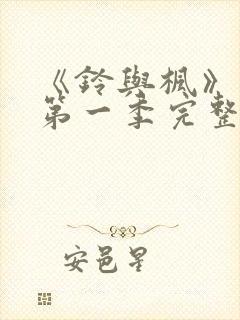 《鈴與楓》
第一季完整
安邑星